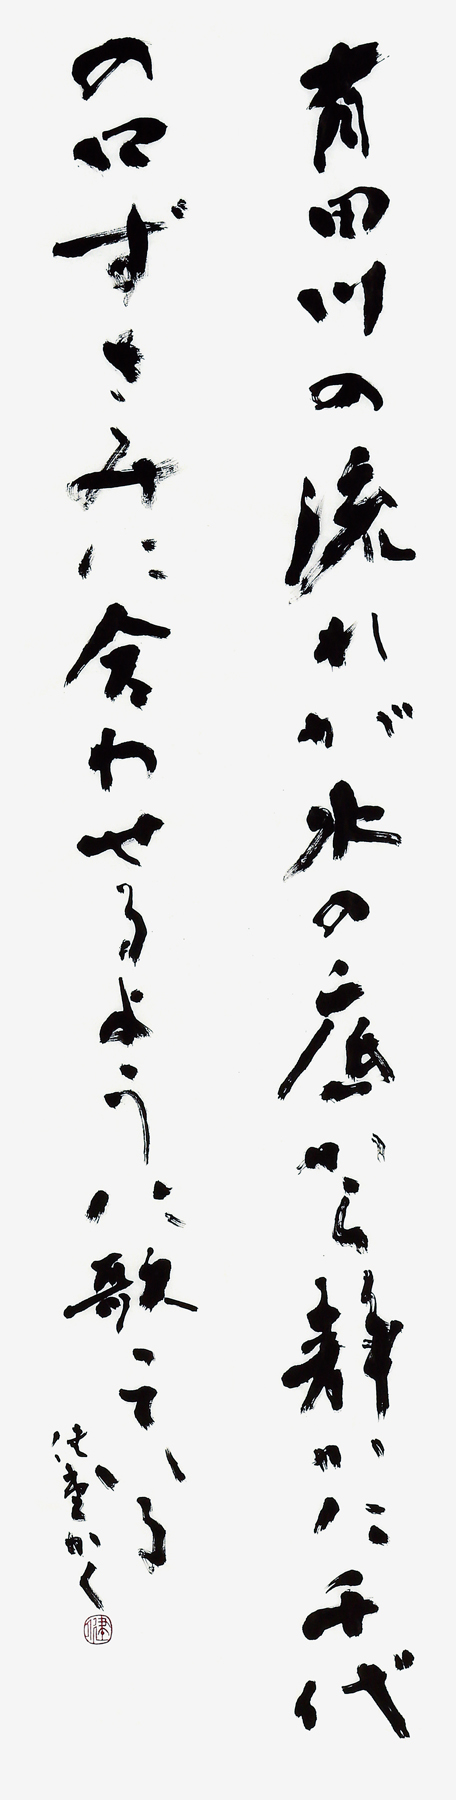 有田川の流れが水の底から静かに千代
の口ずさみに合わせるように歌っている
かく